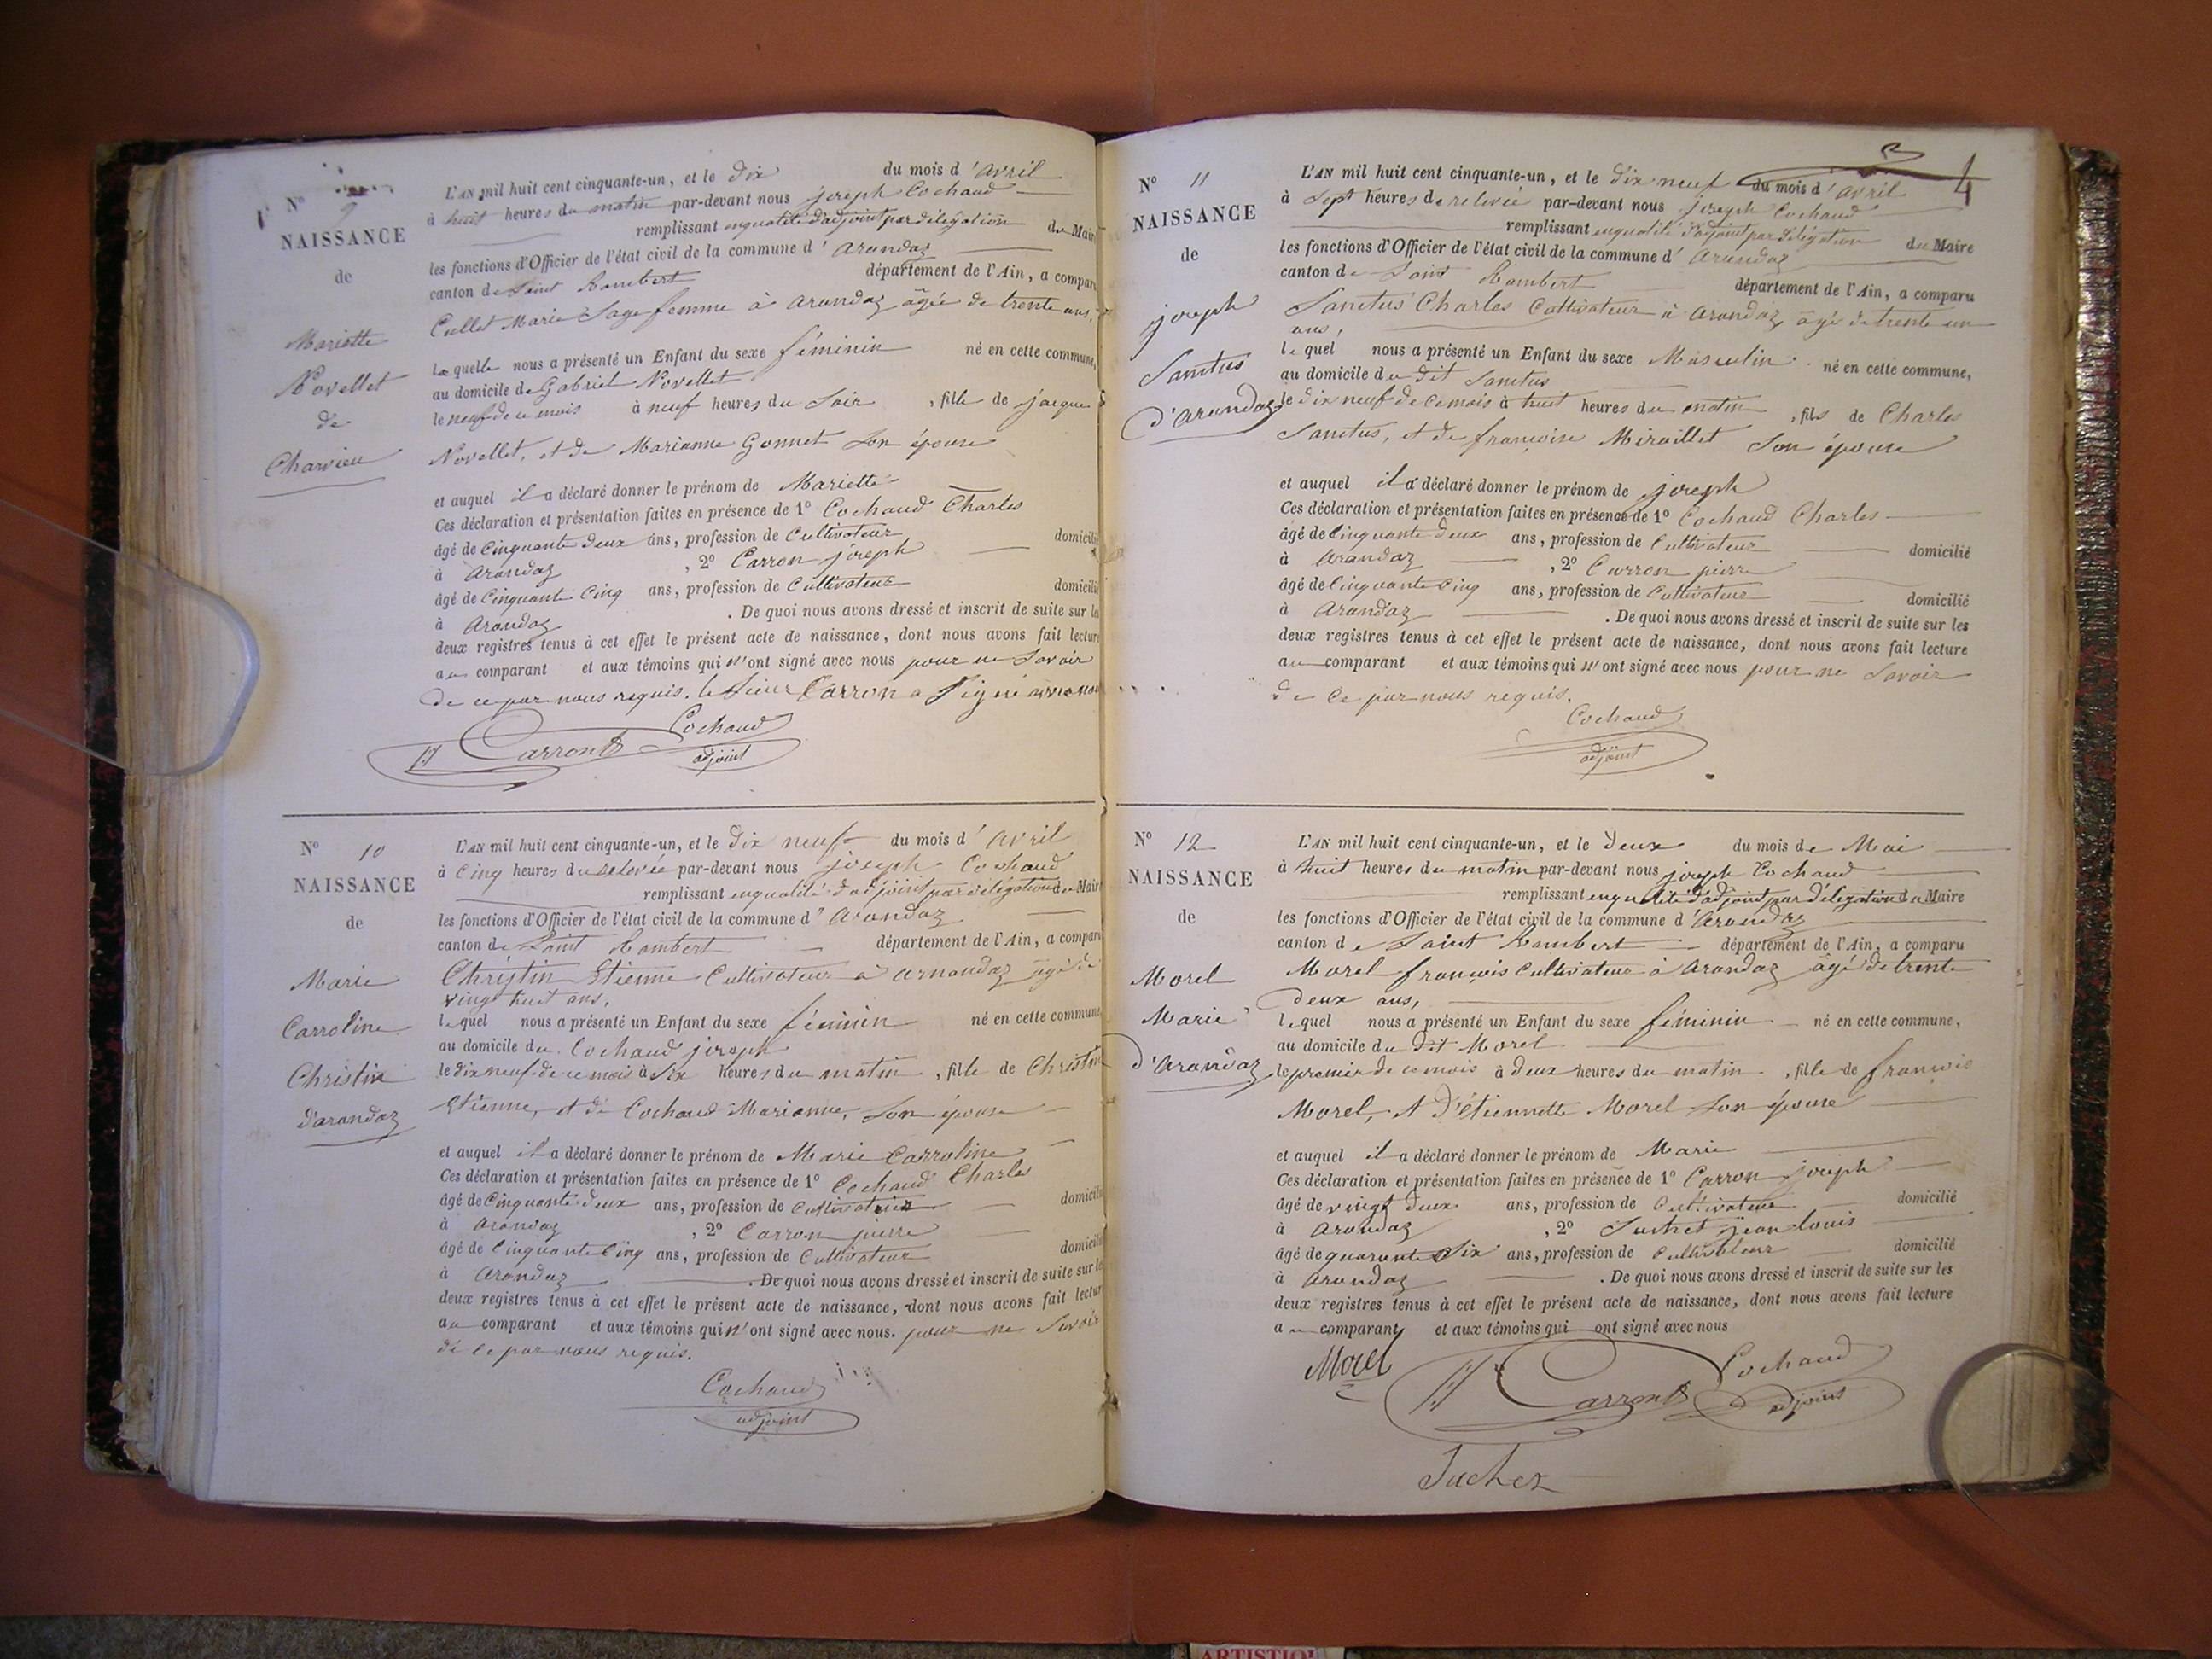 N° 9
NAISSANCE
de
Mariette
Novellet
de
Charvieu
L'AN mil huit cent cinquante-un, et le dix du mois d'avril
à huit heures du matin par-devant nous joseph Cochaud
remplissant enqualité d'adjoint par délégation du Mair
les fonctions d'Officier de l'état civil de la commune d'arandaz
canton de Saint Rambert département de l'Ain, a compar
Cullet Marie Sage femme à arandaz âgée de trente ans,
laquelle nous a présenté un Enfant du sexe féminin né en cette commune,
au domicile de Gabriel Novellet
le neuf de ce mois à neuf heures du Soir , fille de jacque
Novellet, et de Marianne Gonnet Son épouse
et auquel il a déclaré donner le prénom de Mariette
Ces déclaration et présentation faites en présence de 1° Cochaud Charles
âgé de Cinquante deux ans, profession de Cultivateur domicili
à arandaz , 2° Carron joseph
âgé de Cinquante Cinq ans, profession de Cultivateur domicili
à arandaz . De quoi nous avons dressé et inscrit de suite sur le
deux registres tenus à cet effet le présent acte de naissance, dont nous avons fait lecture
au comparant et aux témoins qui n'ont signé avec nous pour ne Savoir
de ce par nous requis. le Sieur Carron a Signé
Carron Cochaud
adjoint
N° 10
NAISSANCE
de
Marie
Carroline
Christin
d'arandaz
L'AN mil huit cent cinquante-un, et le dix neuf du mois d'avril
à Cinq heures du relevée par-devant nous joseph Cochaud
remplissant enqualité d'adjoint par délégation du Mair
les fonctions d'Officier de l'état civil de la commune d'arandaz
canton de Saint Rambert département de l'Ain, a compar
Christin Etienne Cultivateur à arnandaz âgé de
vingt huit ans,
lequel nous a présenté un Enfant du sexe féminin né en cette commune
au domicile du Cochaud joseph
le dix neuf de ce mois à Six heures du matin , fille de Christin
Etienne, et de Cochaud Marianne, Son épouse
et auquel il a déclaré donner le prénom de Marie Carroline
Ces déclaration et présentation faites en présence de 1° Cochaud Charles
âgé de Cinquante deux ans, profession de Cultivateur domicili
à arandaz , 2° Carron pierre
âgé de Cinquante Cinq ans, profession de Cultivateur domicili
à arandaz . De quoi nous avons dressé et inscrit de suite sur le
deux registres tenus à cet effet le présent acte de naissance, dont nous avons fait lectur
au comparant et aux témoins qui n'ont signé avec nous. pour ne Savoir
de ce par nous requis.
Cochaud
adjoint
4
N° 11
NAISSANCE
de
joseph
Sanctus
d'arandaz
L'AN mil huit cent cinquante-un, et le dix neuf du mois d'avril
à Sept heures de relevée par-devant nous joseph Cochaud
remplissant enqualité d'adjoint par délégation du Maire
les fonctions d'Officier de l'état civil de la commune d'arandaz
canton de Saint Rambert département de l'Ain, a comparu
Sanctus Charles Cultivateur à arandaz âgé de trente un
ans,
lequel nous a présenté un Enfant du sexe Masculin né en cette commune,
au domicile du dit Sanctus
le dix neuf de ce mois à huit heures du matin , fils de Charles
Sanctus, et de françoise Miraillet Son épouse
et auquel il a déclaré donner le prénom de joseph
Ces déclaration et présentation faites en présence de 1° Cochaud Charles
âgé de Cinquante deux ans, profession de Cultivateur domicilié
à arandaz , 2° Carron pierre
âgé de Cinquante Cinq ans, profession de Cultivateur domicilié
à arandaz . De quoi nous avons dressé et inscrit de suite sur les
deux registres tenus à cet effet le présent acte de naissance, dont nous avons fait lecture
au comparant et aux témoins qui n'ont signé avec nous pour ne Savoir
de ce par nous requis.
Cochaud
adjoint
N° 12
NAISSANCE
de
Morel
Marie
d'arandaz
L'AN mil huit cent cinquante-un, et le deux du mois de Mai
à huit heures du matin par-devant nous joseph Cochaud
remplissant enqualité d'adjoint par délégation du Maire
les fonctions d'Officier de l'état civil de la commune d'arandaz
canton de Saint Rambert département de l'Ain, a comparu
Morel françois Cultivateur à arandaz âgé de trente
deux ans,
lequel nous a présenté un Enfant du sexe féminin né en cette commune,
au domicile du dit Morel
le premier de ce mois à deux heures du matin , fille de françois
Morel, et d'étiennette Morel Son épouse
et auquel il a déclaré donner le prénom de Marie
Ces déclaration et présentation faites en présence de 1° Carron joseph
âgé de vingt deux ans, profession de Cultivateur domicilié
à arandaz , 2° jean louis
âgé de quarante Six ans, profession de Cultivateur domicilié
à arandaz . De quoi nous avons dressé et inscrit de suite sur les
deux registres tenus à cet effet le présent acte de naissance, dont nous avons fait lecture
au comparant et aux témoins qui ont signé avec nous
Morel Carron Cochaud
adjoint
ARTISTIQU